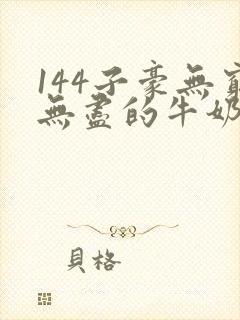 144子豪無窮
無盡的牛奶
貝格